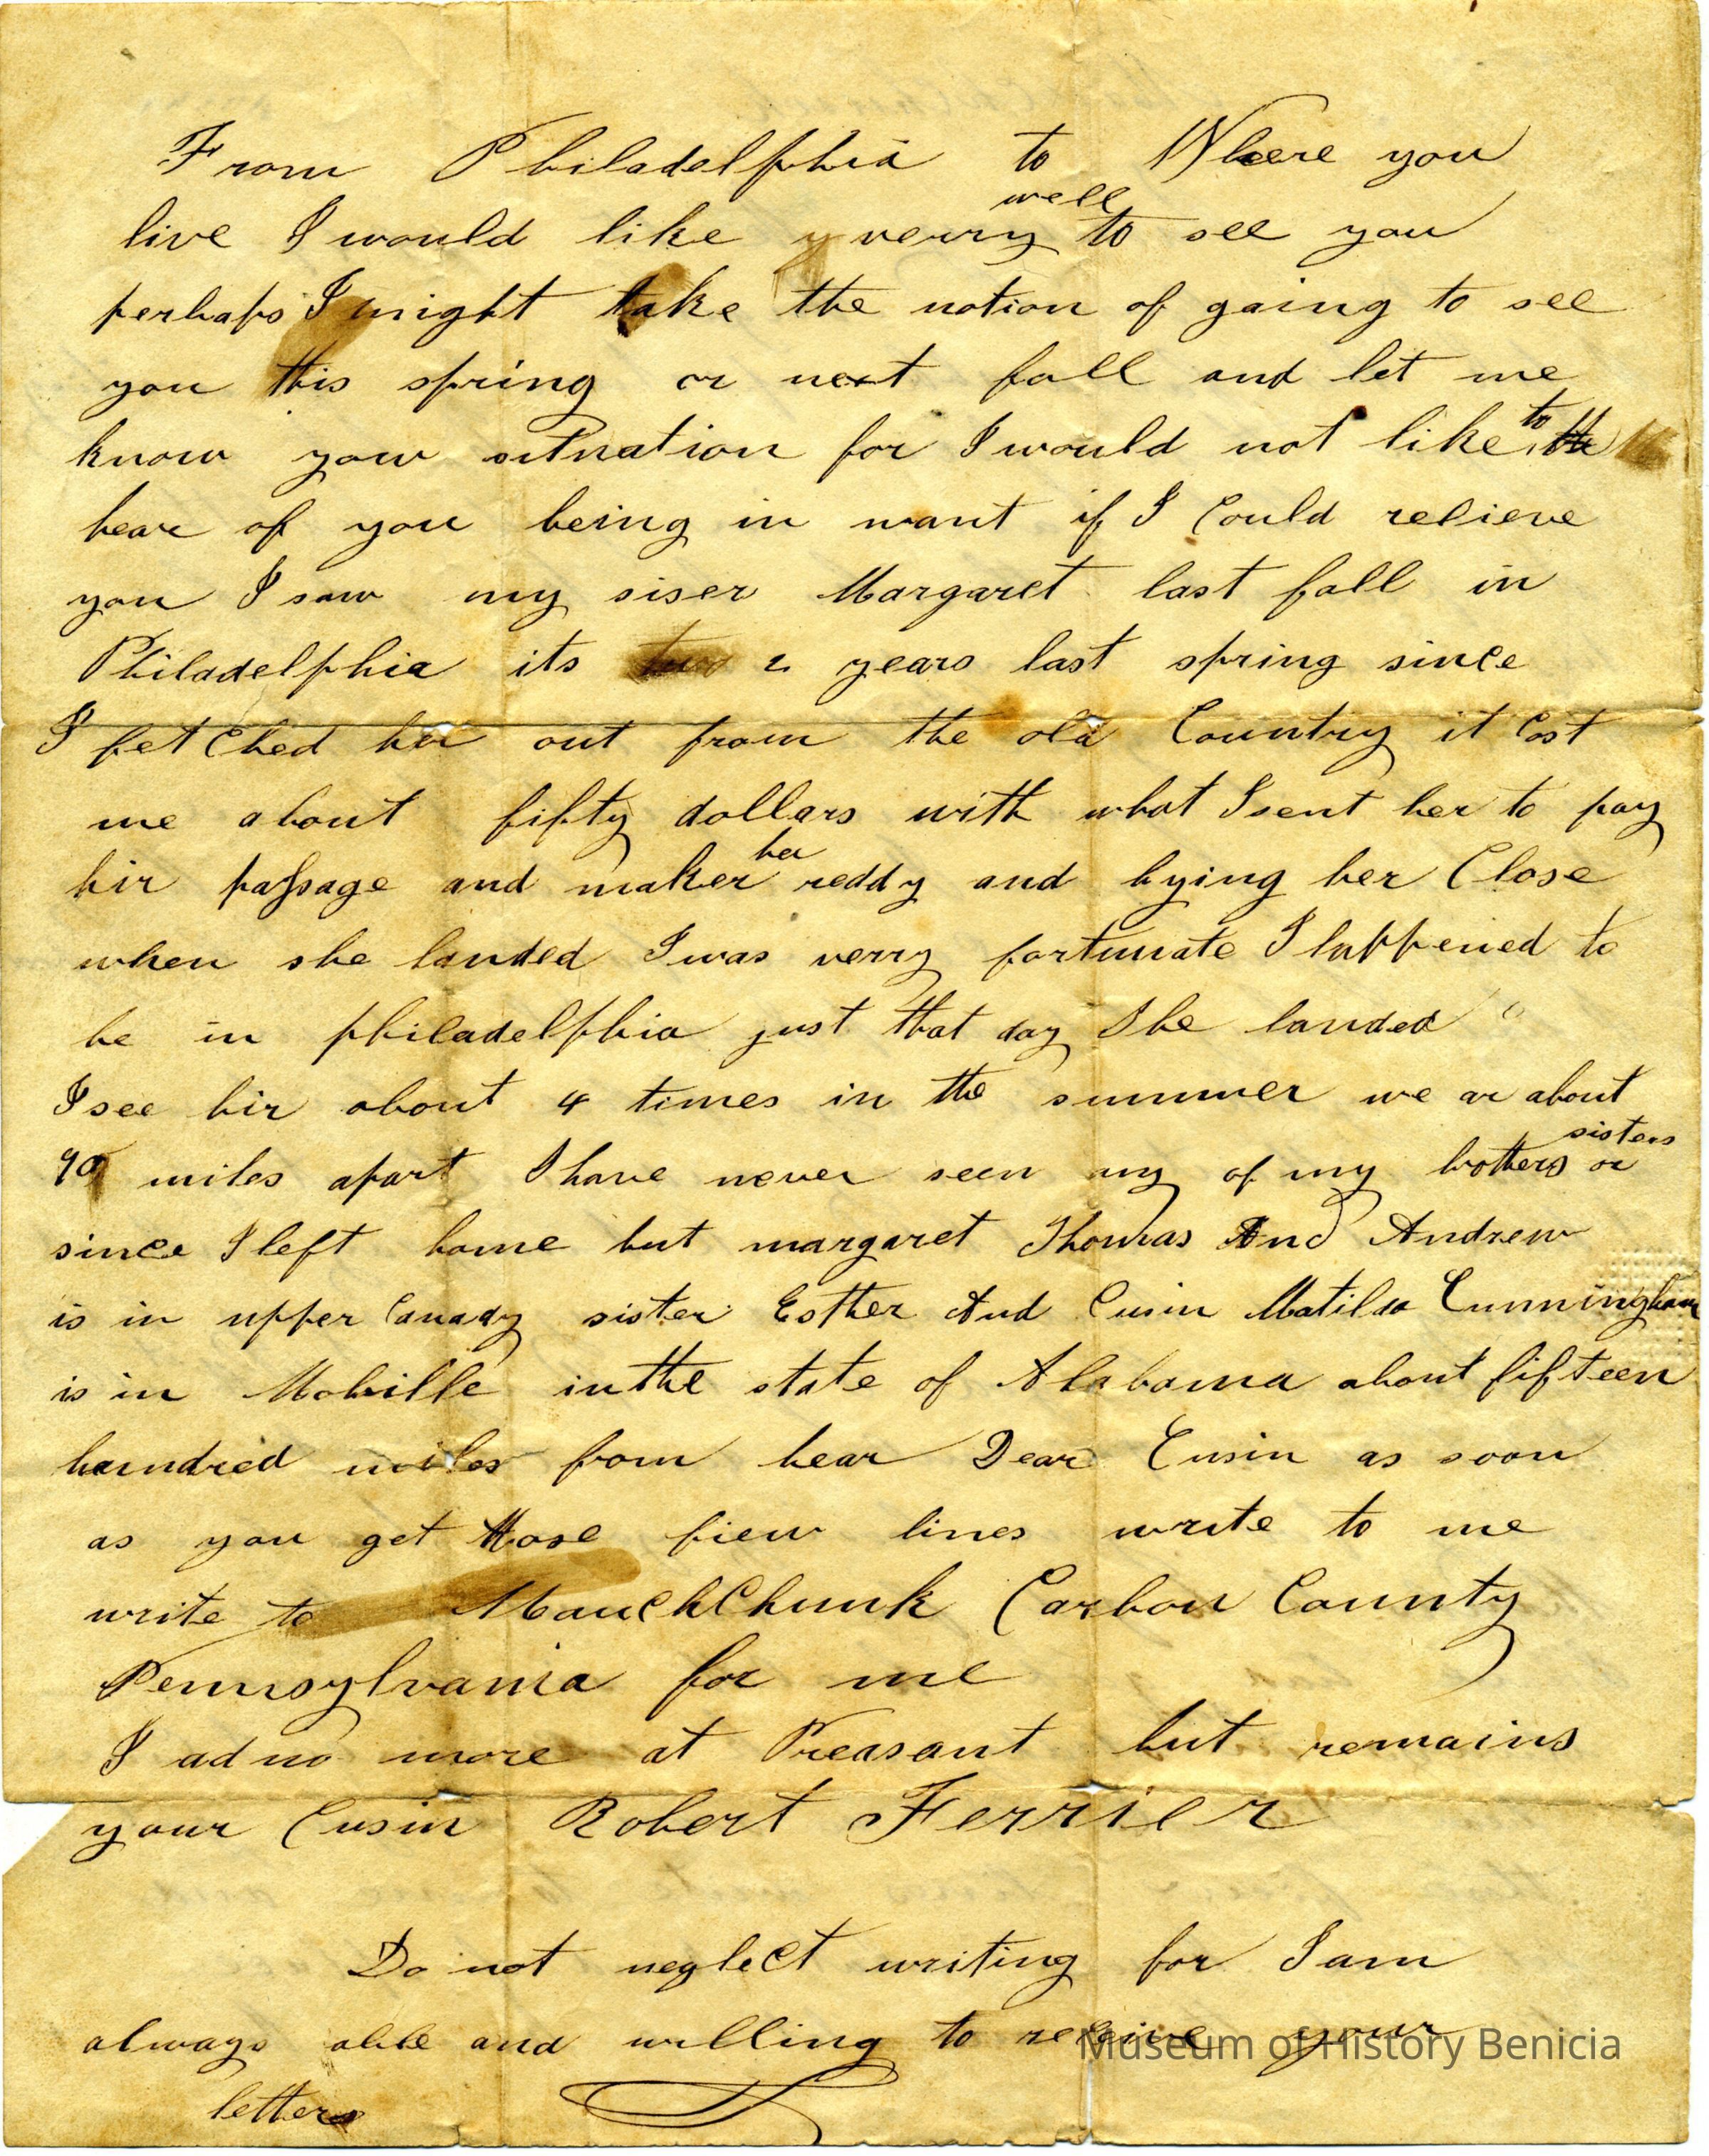 From Philadelphia to Where you
live I would like verry well to see you
perhaps I might take the notion of going to see
you this spring or next fall and let me
know your sitnation for I would not like to
hear of you being in want if I Could relieve
you I saw my siser Margaret last fall in
Philadelphia its two 2 years last spring since
I fetched hir out from the old Country it Cost
me about fifty dollars with what I sent her to pay
hir passage and maker her reddy and bying her Close
when she landed I was verry fortunate I happened to
be in philadelphia just that day She landed
I see hir about 4 times in the summer we ar about
90 miles apart I have never seen any of my bothers or sisters
since I left home but margaret Thomas And Andrew
is in upper Canady sister Esther And Cusin Matilda Cunningham
is in Mobille in the state of Alabama about fifteen
hundred miles from hear Dear Cusin as soon
as you get those fiew lines write to me
write to MauchChunk Carbon County
Pennsylvania for me
I ad no more at Preasant but remains
your Cusin Robert Ferrier
Do not neglect writing for I am
always able and willing to receive your
letters
Museum of History Benicia